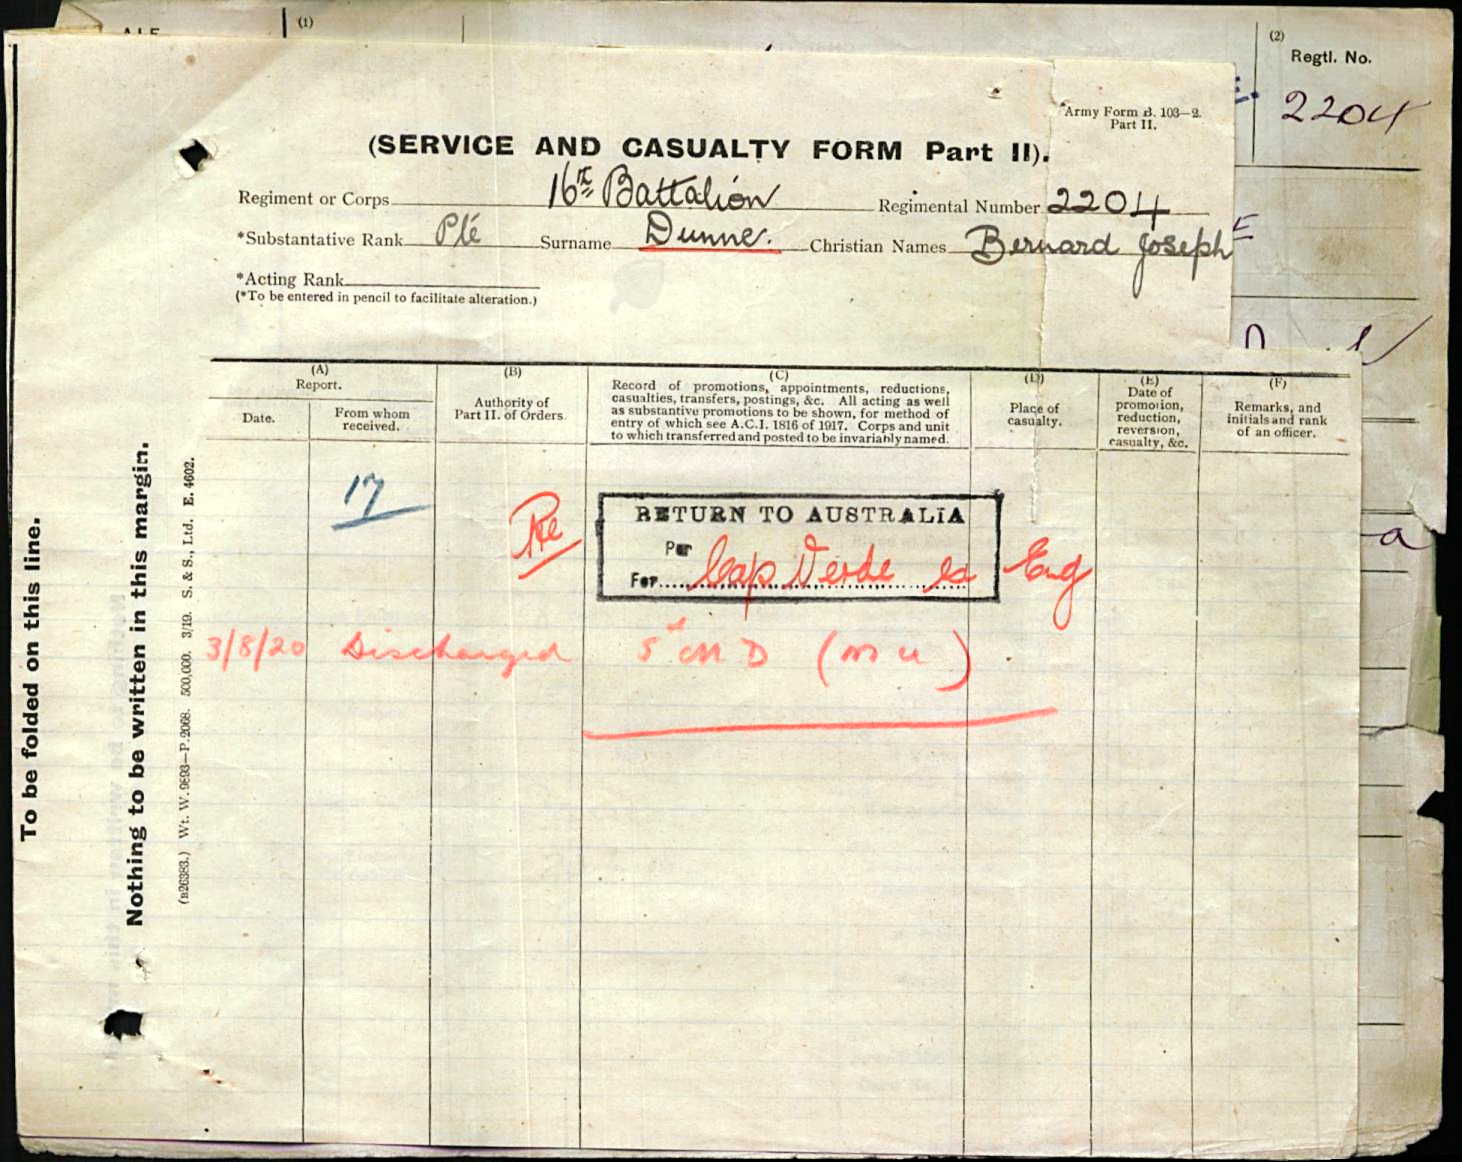 A.I.F.
(1)
(2)
Regtl. No.
2204
Army Form B. 103—2.
Part II.
(SERVICE AND CASUALTY FORM Part II).
Regiment or Corps 16th Battalion Regimental Number 2204
*Substantative Rank Pte Surname Dunne. Christian Names Bernard Joseph
*Acting Rank
(*To be entered in pencil to facilitate alteration.)
To be folded on this line.
Nothing to be written in this margin.
(B26383.) Wt. W. 9893—P.2068. 500,000. 3/19. S. & S., Ltd. E. 4602.
(A)
Report.
Date.
From whom
received.
(B)
Authority of
Part II. of Orders.
(C)
Record of promotions, appointments, reductions,
casualties, transfers, postings, &c. All acting as well
as substantive promotions to be shown, for method of
entry of which see A.C.I. 1816 of 1917. Corps and unit
to which transferred and posted to be invariably named.
(D)
Place of
casualty.
(E)
Date of
promotion,
reduction,
reversion,
casualty, &c.
(F)
Remarks, and
initials and rank
of an officer.
17
Pte
RETURN TO AUSTRALIA
Per
For Cap Verde ex Eng
3/8/20 Discharged 5th M D (M U)